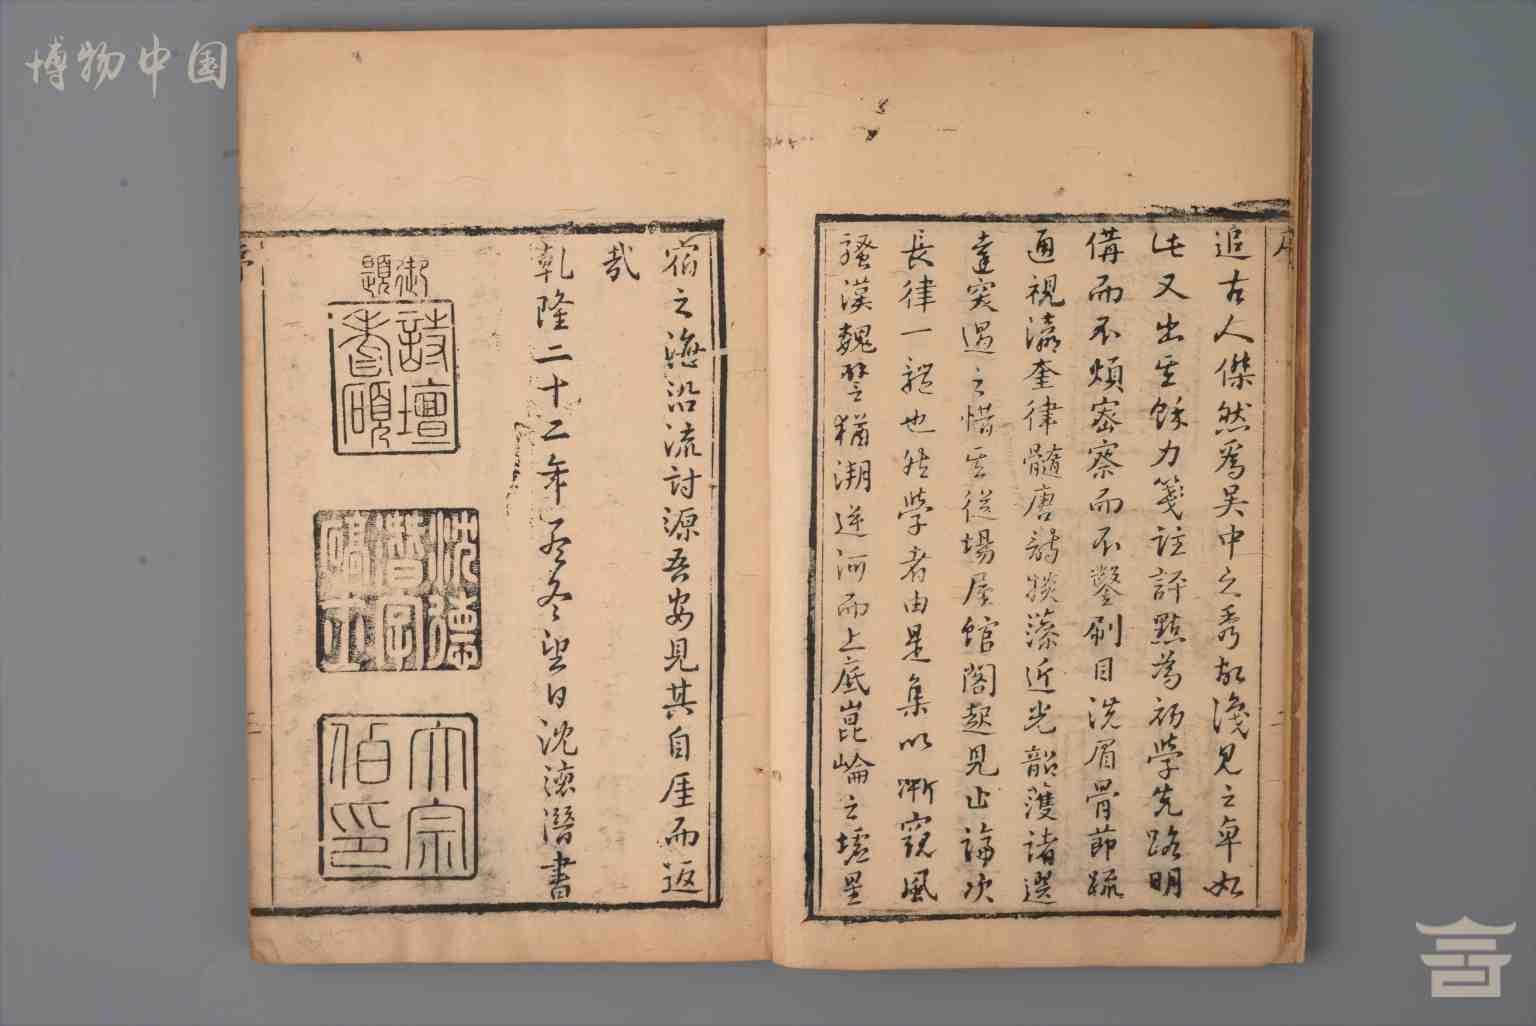 博物中国
序
追古人傑然為吴中之秀故淺見之卓如
此又出其餘力箋註評點為初學先路明
備而不煩密察而不鑿刷目洗眉骨節疏
通視瀛奎律髓唐詩掞藻近光韶頀諸選
遠突過之惜其從場屋館閣起見止論次
長律一體也然學者由是集以漸窺風
騷漢魏譬猶溯逆河而上底崑崙之墟星
二
宿之海沿流討源吾安見其自厓而返
哉
乾隆二十二年冬望日沈德潛書
御題
詩壇耆碩
沈德潛字碻士
大宗伯印
序
二